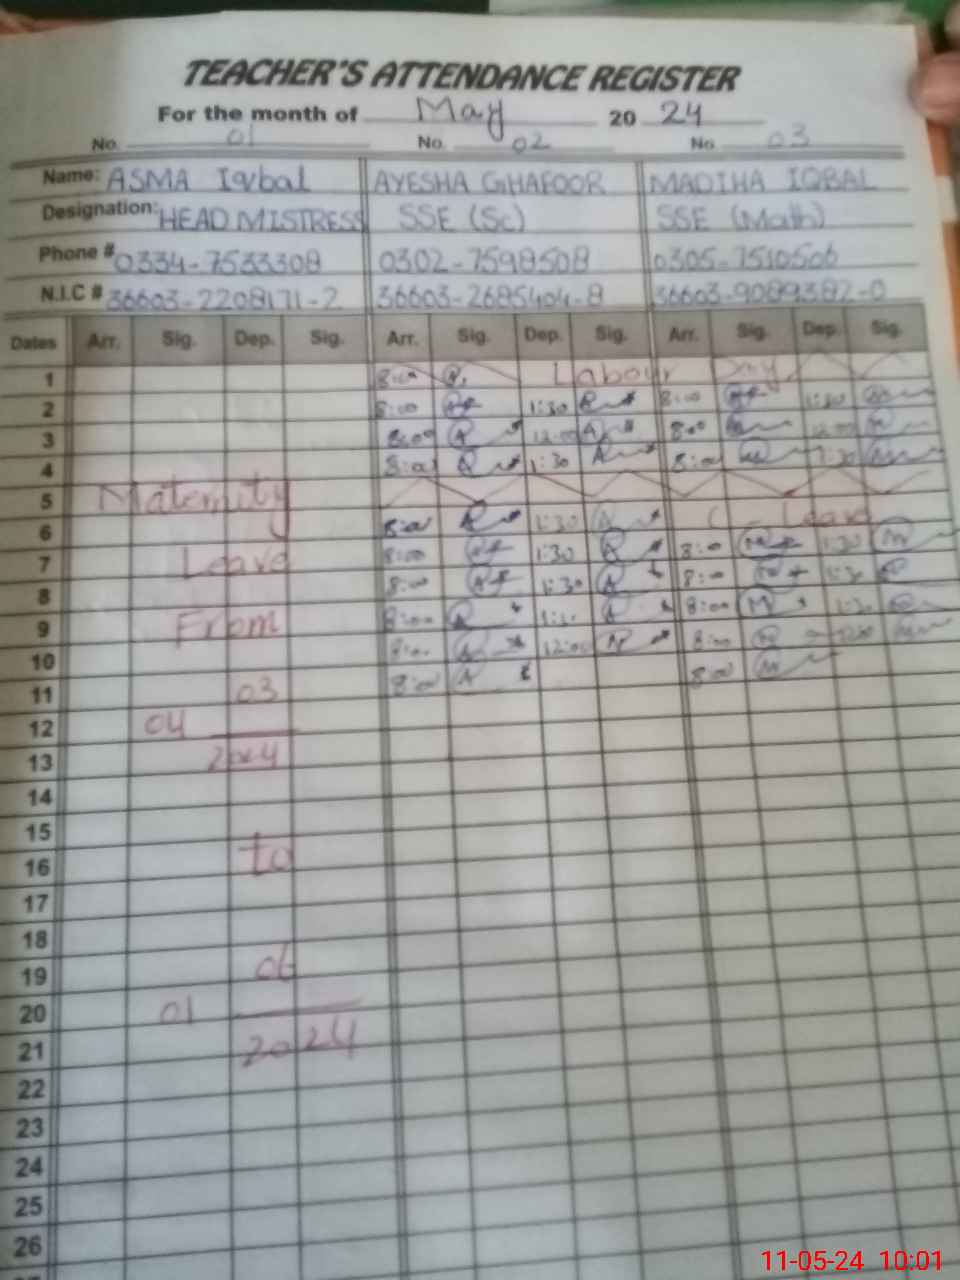 TEACHER'S ATTENDANCE REGISTER
For the month of May 20 24
No. 01 No. 02 No 03
Name: ASMA Iqbal AYESHA GHAFOOR MADIHA IQBAL
Designation: HEAD MISTRESS SSE (Sc) SSE (Math)
Phone # 0334-7533308 0302-7598508 0305-7510506
N.I.C # 36603-2208171-2 36603-2685404-8 36603-9089382-0
Dates Arr. Sig. Dep. Sig. Arr. Sig. Dep. Sig. Arr. Sig. Dep. Sig.
1 8:00 Labour Day
2 8:00 1:30 8:00 1:30
3 8:00 12:00 8:00 12:00
4 8:00 1:30 8:00 1:30
5 Maternity
6 8:00 1:30 Leave
7 Leave 8:00 1:30 8:00 1:30
8 8:00 1:30 8:00 1:30
9 From 8:00 1:30 8:00 1:30
10 8:00 12:00 8:00
11 03 8:00 8:00
12 04
13 2024
14
15
16 to
17
18
19 06
20 01
21 2024
22
23
24
25
26
11-05-24 10:01